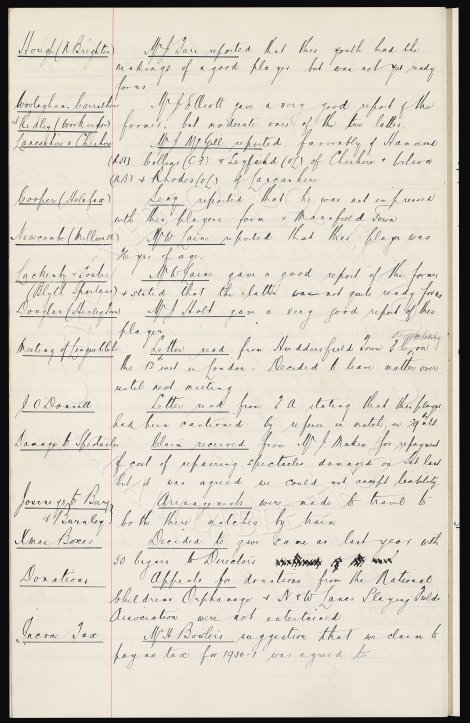 Hough (R Brighton) Mr J Tare reported that this youth had the
makings of a good player but was not yet ready
form
Woolaghan. Carruthers Mr J Elliott gave a very good report of the
& Hedley (Workington) former, but moderate ones of the two latter.
Lancashire v Cheshire Mr J McGill reported favourably of Hammond
(RH) Collings (CF) & Leyfield (OL) of Cheshire & Wilson
(RB) & Rhodes (OL) of Lancashire
Cooper (Halifax) Leng reported that he was not impressed
with this players form v Mansfield Town
Newcomb (Millwall) Mr W Caine reported that this player was
26 yrs of age.
Lackenby & Foster Mr W Caine gave a good report of the former
(Blyth Spartans) & stated that the latter was not quite ready for us
Douglas (Headington) Mr J Holt gave a very good report of this
player
Meeting of League Clubs Letter read from Huddersfield Town F C on
the 15 inst in London. Decided to leave matter over
until next meeting
J O'Donnell Letter read from F A stating that this player
had been cautioned by referee in match on 29th ult
Damage to Spectacles Claim received from Mr J Makin for repayment
of cost of repairing spectacles damaged on Sat last
but it was agreed we could not accept liability.
Journeys to Bury Arrangements were made to travel to
& Burnley both these matches by train
Xmas Boxes Decided to give same as last year with
50 Cigars to Directors
Donations Appeals for donations from the National
Childrens Orphanage & N & W Lancs Playing Fields
Association were not entertained
Income Tax Mr H Bowler's suggestion that we claim to
pay no tax for 1930-1 was agreed to